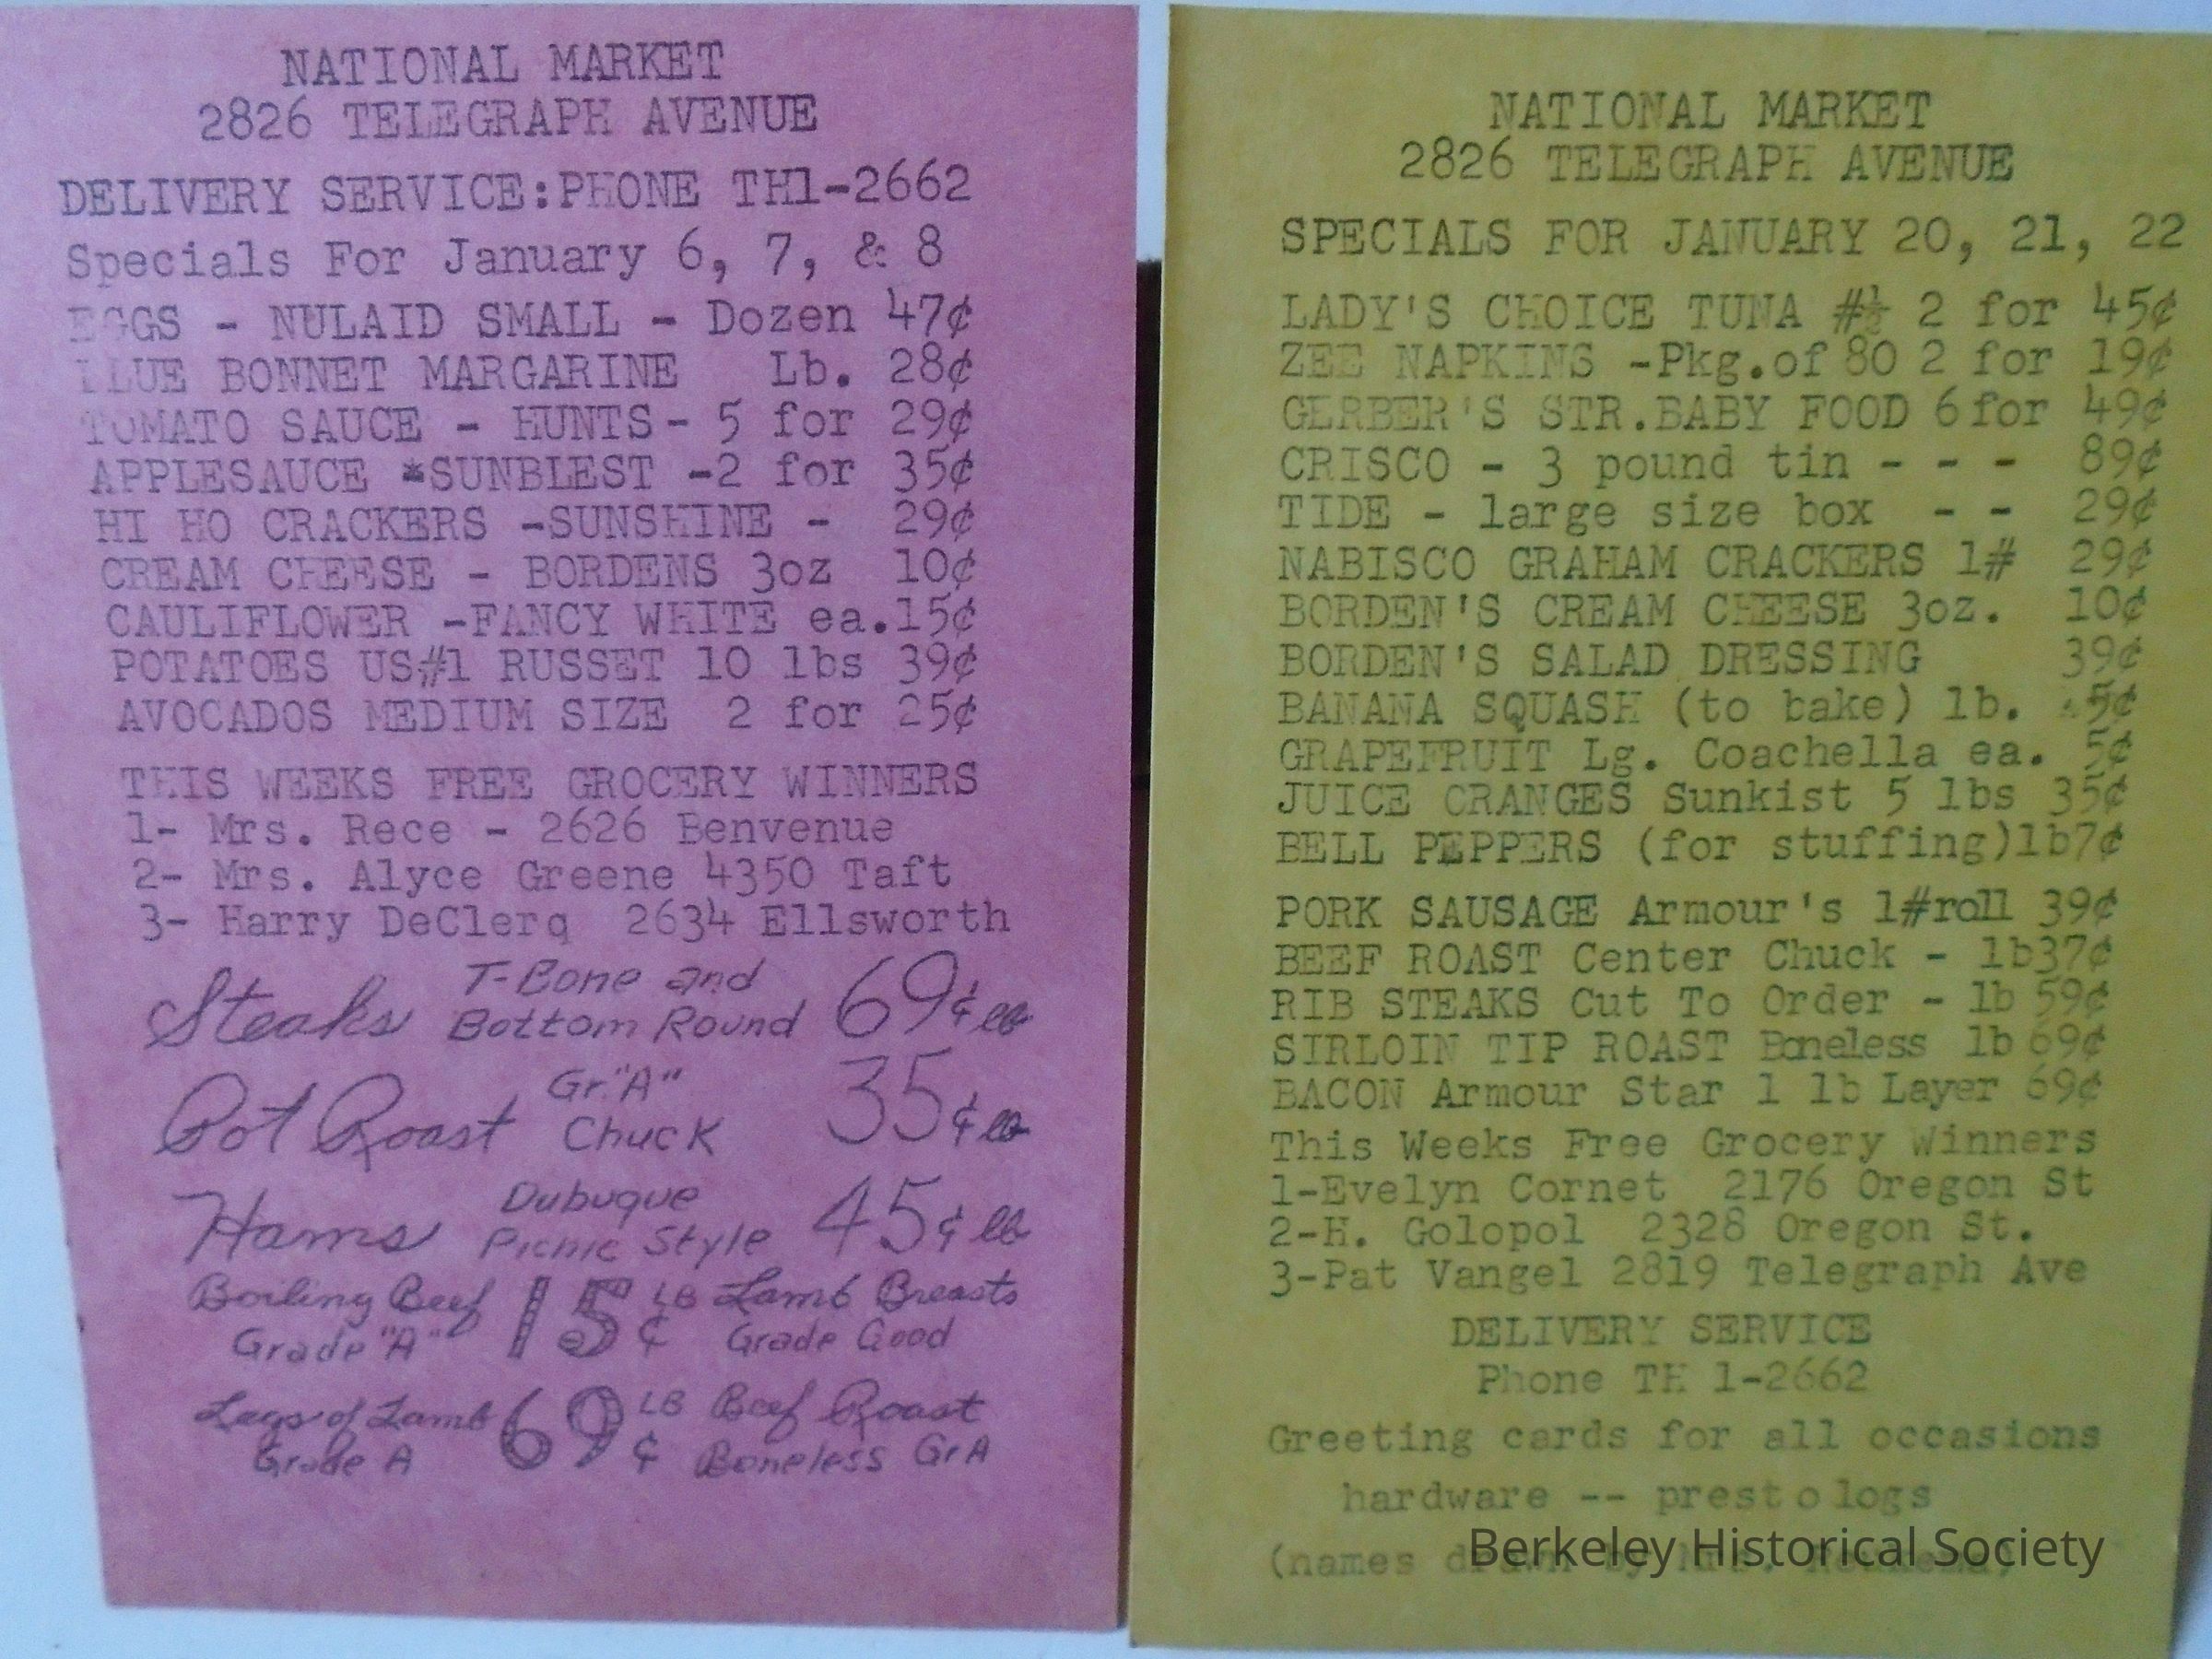 NATIONAL MARKET
2826 TELEGRAPH AVENUE
DELIVERY SERVICE:PHONE TH1-2662
Specials For January 6, 7, & 8
EGGS - NULAID SMALL - Dozen 47¢
BLUE BONNET MARGARINE Lb. 28¢
TOMATO SAUCE - HUNTS - 5 for 29¢
APPLESAUCE *SUNBLEST -2 for 35¢
HI HO CRACKERS -SUNSHINE - 29¢
CREAM CHEESE - BORDENS 3oz 10¢
CAULIFLOWER -FANCY WHITE ea.15¢
POTATOES US#1 RUSSET 10 lbs 39¢
AVOCADOS MEDIUM SIZE 2 for 25¢
THIS WEEKS FREE GROCERY WINNERS
1- Mrs. Rece - 2626 Benvenue
2- Mrs. Alyce Greene 4350 Taft
3- Harry DeClerq 2634 Ellsworth
Steaks T-Bone and Bottom Round 69¢ lb
Pot Roast Gr."A" Chuck 35¢ lb
Hams Dubuque Picnic Style 45¢ lb
Boiling Beef Grade "A" 15¢ LB Lamb Breasts Grade Good
Legs of Lamb Grade A 69¢ LB Beef Roast Boneless Gr A
NATIONAL MARKET
2826 TELEGRAPH AVENUE
SPECIALS FOR JANUARY 20, 21, 22
LADY'S CHOICE TUNA #½ 2 for 45¢
ZEE NAPKINS -Pkg.of 80 2 for 19¢
GERBER'S STR.BABY FOOD 6 for 49¢
CRISCO - 3 pound tin - - - 89¢
TIDE - large size box - - 29¢
NABISCO GRAHAM CRACKERS 1# 29¢
BORDEN'S CREAM CHEESE 3oz. 10¢
BORDEN'S SALAD DRESSING 39¢
BANANA SQUASH (to bake) lb. 5¢
GRAPEFRUIT Lg. Coachella ea. 5¢
JUICE ORANGES Sunkist 5 lbs 35¢
BELL PEPPERS (for stuffing)lb7¢
PORK SAUSAGE Armour's 1#roll 39¢
BEEF ROAST Center Chuck - lb37¢
RIB STEAKS Cut To Order - lb 59¢
SIRLOIN TIP ROAST Boneless lb 69¢
BACON Armour Star 1 lb Layer 69¢
This Weeks Free Grocery Winners
1-Evelyn Cornet 2176 Oregon St
2-H. Golopol 2328 Oregon St.
3-Pat Vangel 2819 Telegraph Ave
DELIVERY SERVICE
Phone TH 1-2662
Greeting cards for all occasions
hardware -- presto logs
(names drawn by Mrs.
Berkeley Historical Society